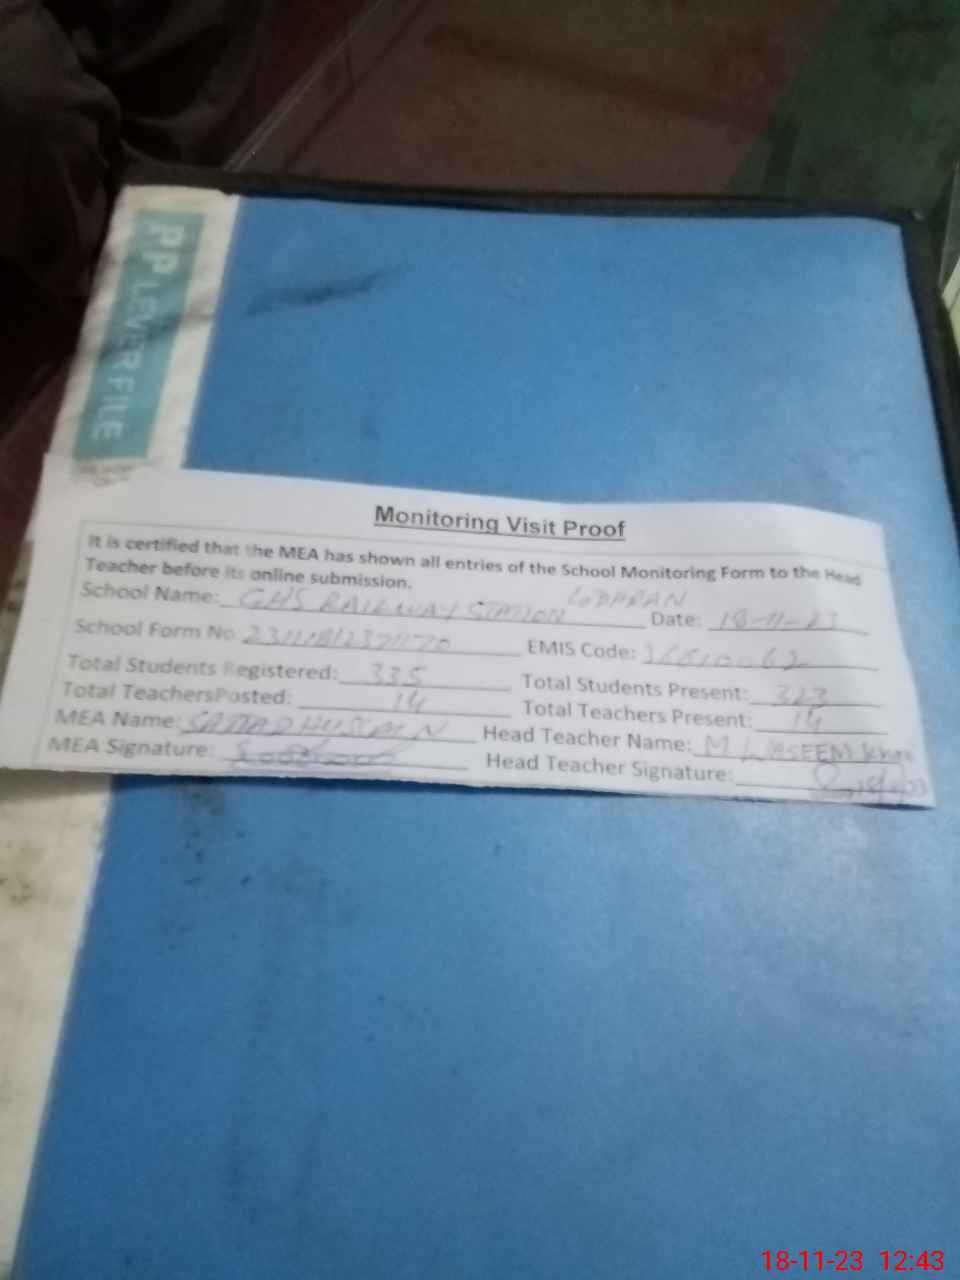 PP LEVER FILE
Monitoring Visit Proof
It is certified that the MEA has shown all entries of the School Monitoring Form to the Head
Teacher before its online submission.
School Name: GHS RAILWAY STATION LODHRAN Date: 18-11-23
School Form No EMIS Code:
Total Students Registered: 335 Total Students Present:
Total TeachersPosted: 14 Total Teachers Present: 14
MEA Name: HUSSAIN Head Teacher Name: M WASEEM Khan
MEA Signature: Head Teacher Signature:
18-11-23 12:43